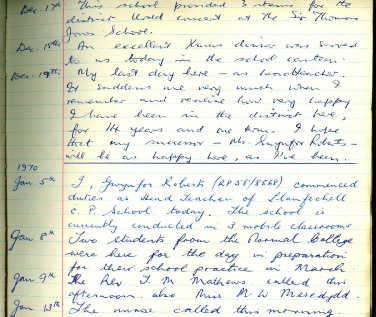 Dec. 17th This school provided 3 items for the
district Urdd concert at the Sir Thomas
Jones School.
Dec. 18th An excellent Xmas dinner was served
to us today in the school canteen.
Dec. 19th My last day here - as headteacher.
It saddens me very much when I
remember and realise how very happy
I have been in the district here,
for 14 years and one term. I hope
that my successor - Mr. Gwynfor Roberts -
will be as happy here, as I've been.
1970
Jan. 5th I, Gwynfor Roberts (RP58/8568) commenced
duties as Head Teacher of Llanfechell
C. P. School today. The school is
currently conducted in 3 mobile classrooms
Jan 8th Two students from the Normal College
were here for the day in preparation
for their school practice in March.
Jan 9th The Rev T. M. Mathews called this
afternoon. also Miss M. W. Meredydd.
Jan 13th The nurse called this morning